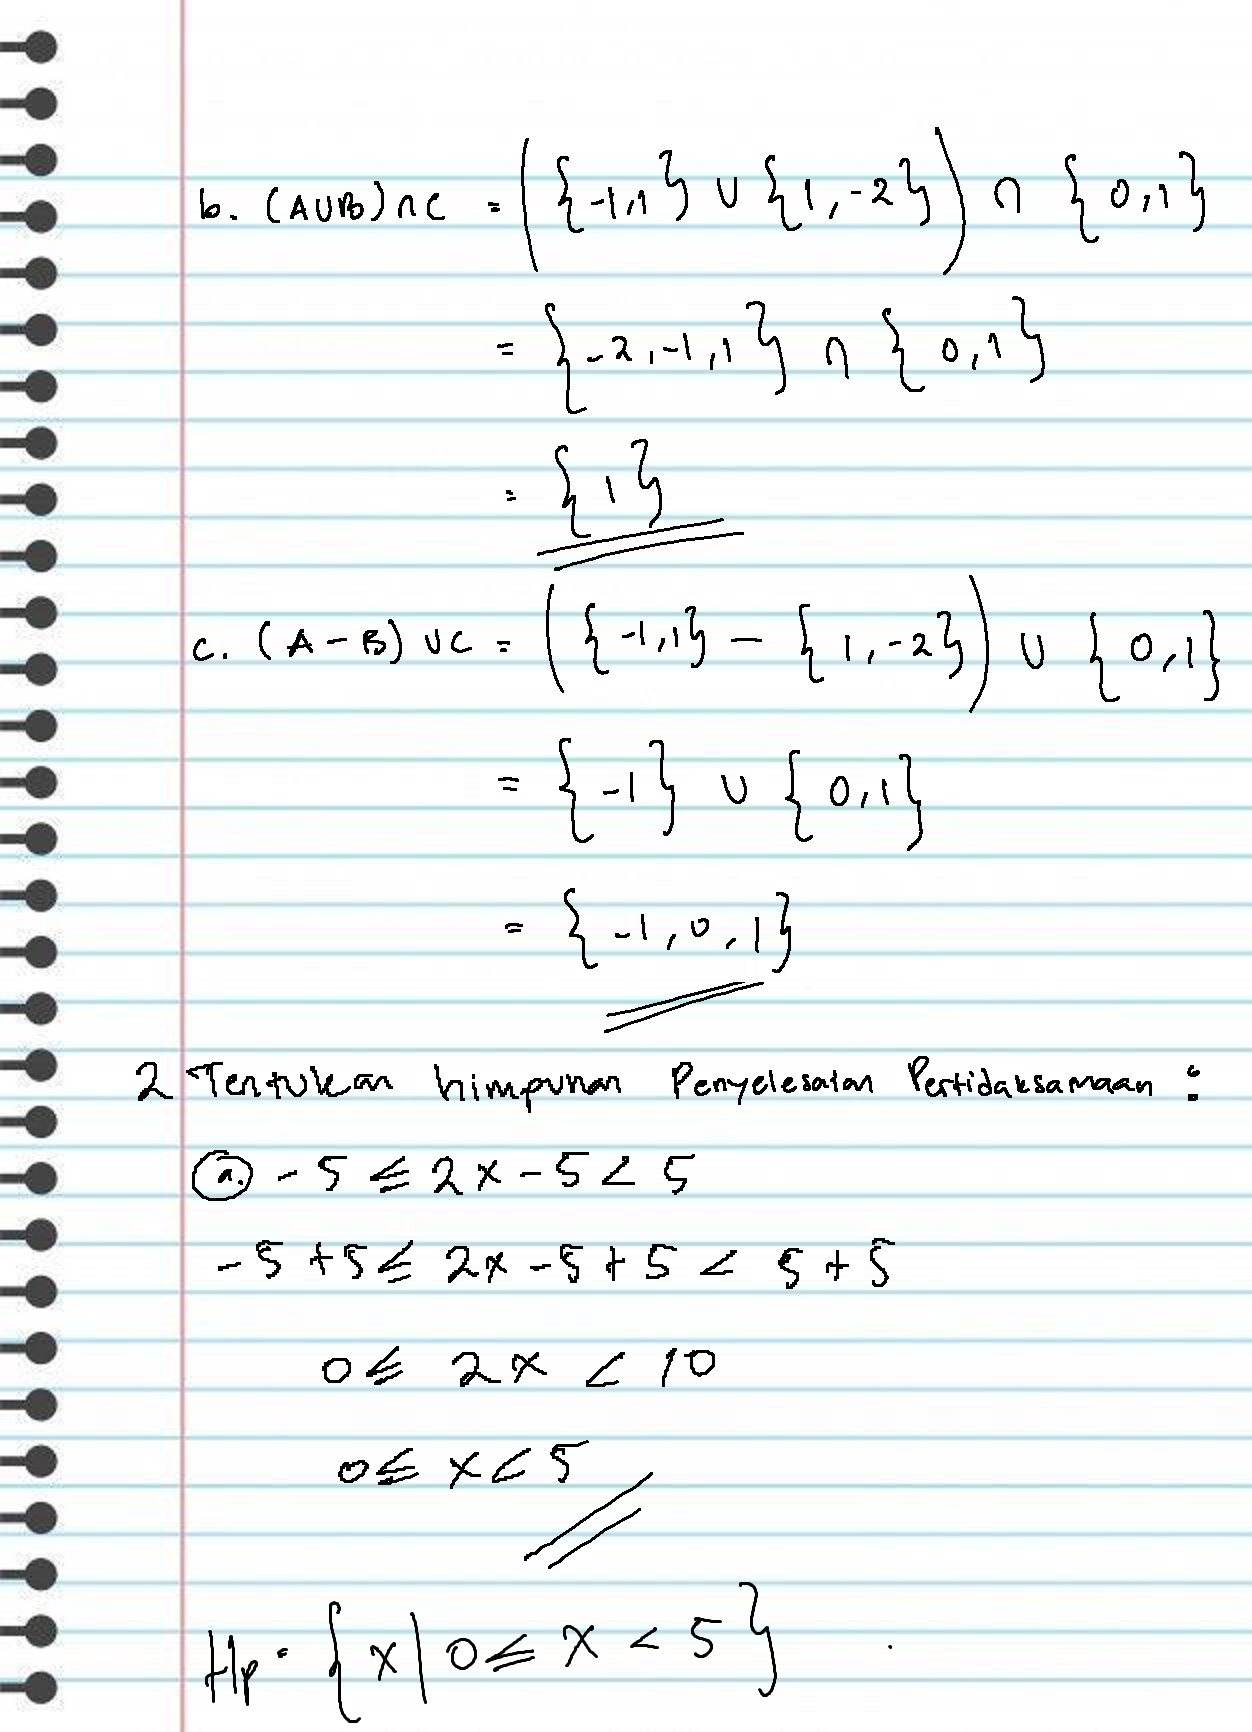 b. (A∪B)∩C = ({-1,1} ∪ {1,-2}) ∩ {0,1}
= {-2,-1,1} ∩ {0,1}
= {1}
c. (A-B) ∪C = ({-1,1} - {1,-2}) ∪ {0,1}
= {-1} ∪ {0,1}
= {-1,0,1}
2 Tentukan himpunan Penyelesaian Pertidaksamaan :
a. -5 ≤ 2x-5 < 5
-5+5 ≤ 2x-5+5 < 5+5
0 ≤ 2x < 10
0 ≤ x < 5
Hp = {x|0 ≤ x < 5}